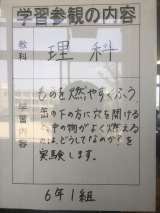 学習参観の内容
教科
理科
学習内容
ものを燃やすくふう
缶の下の方に穴を開ける
中の物がよく燃える
は、どうしてなのか?を
実験します。
6年1組